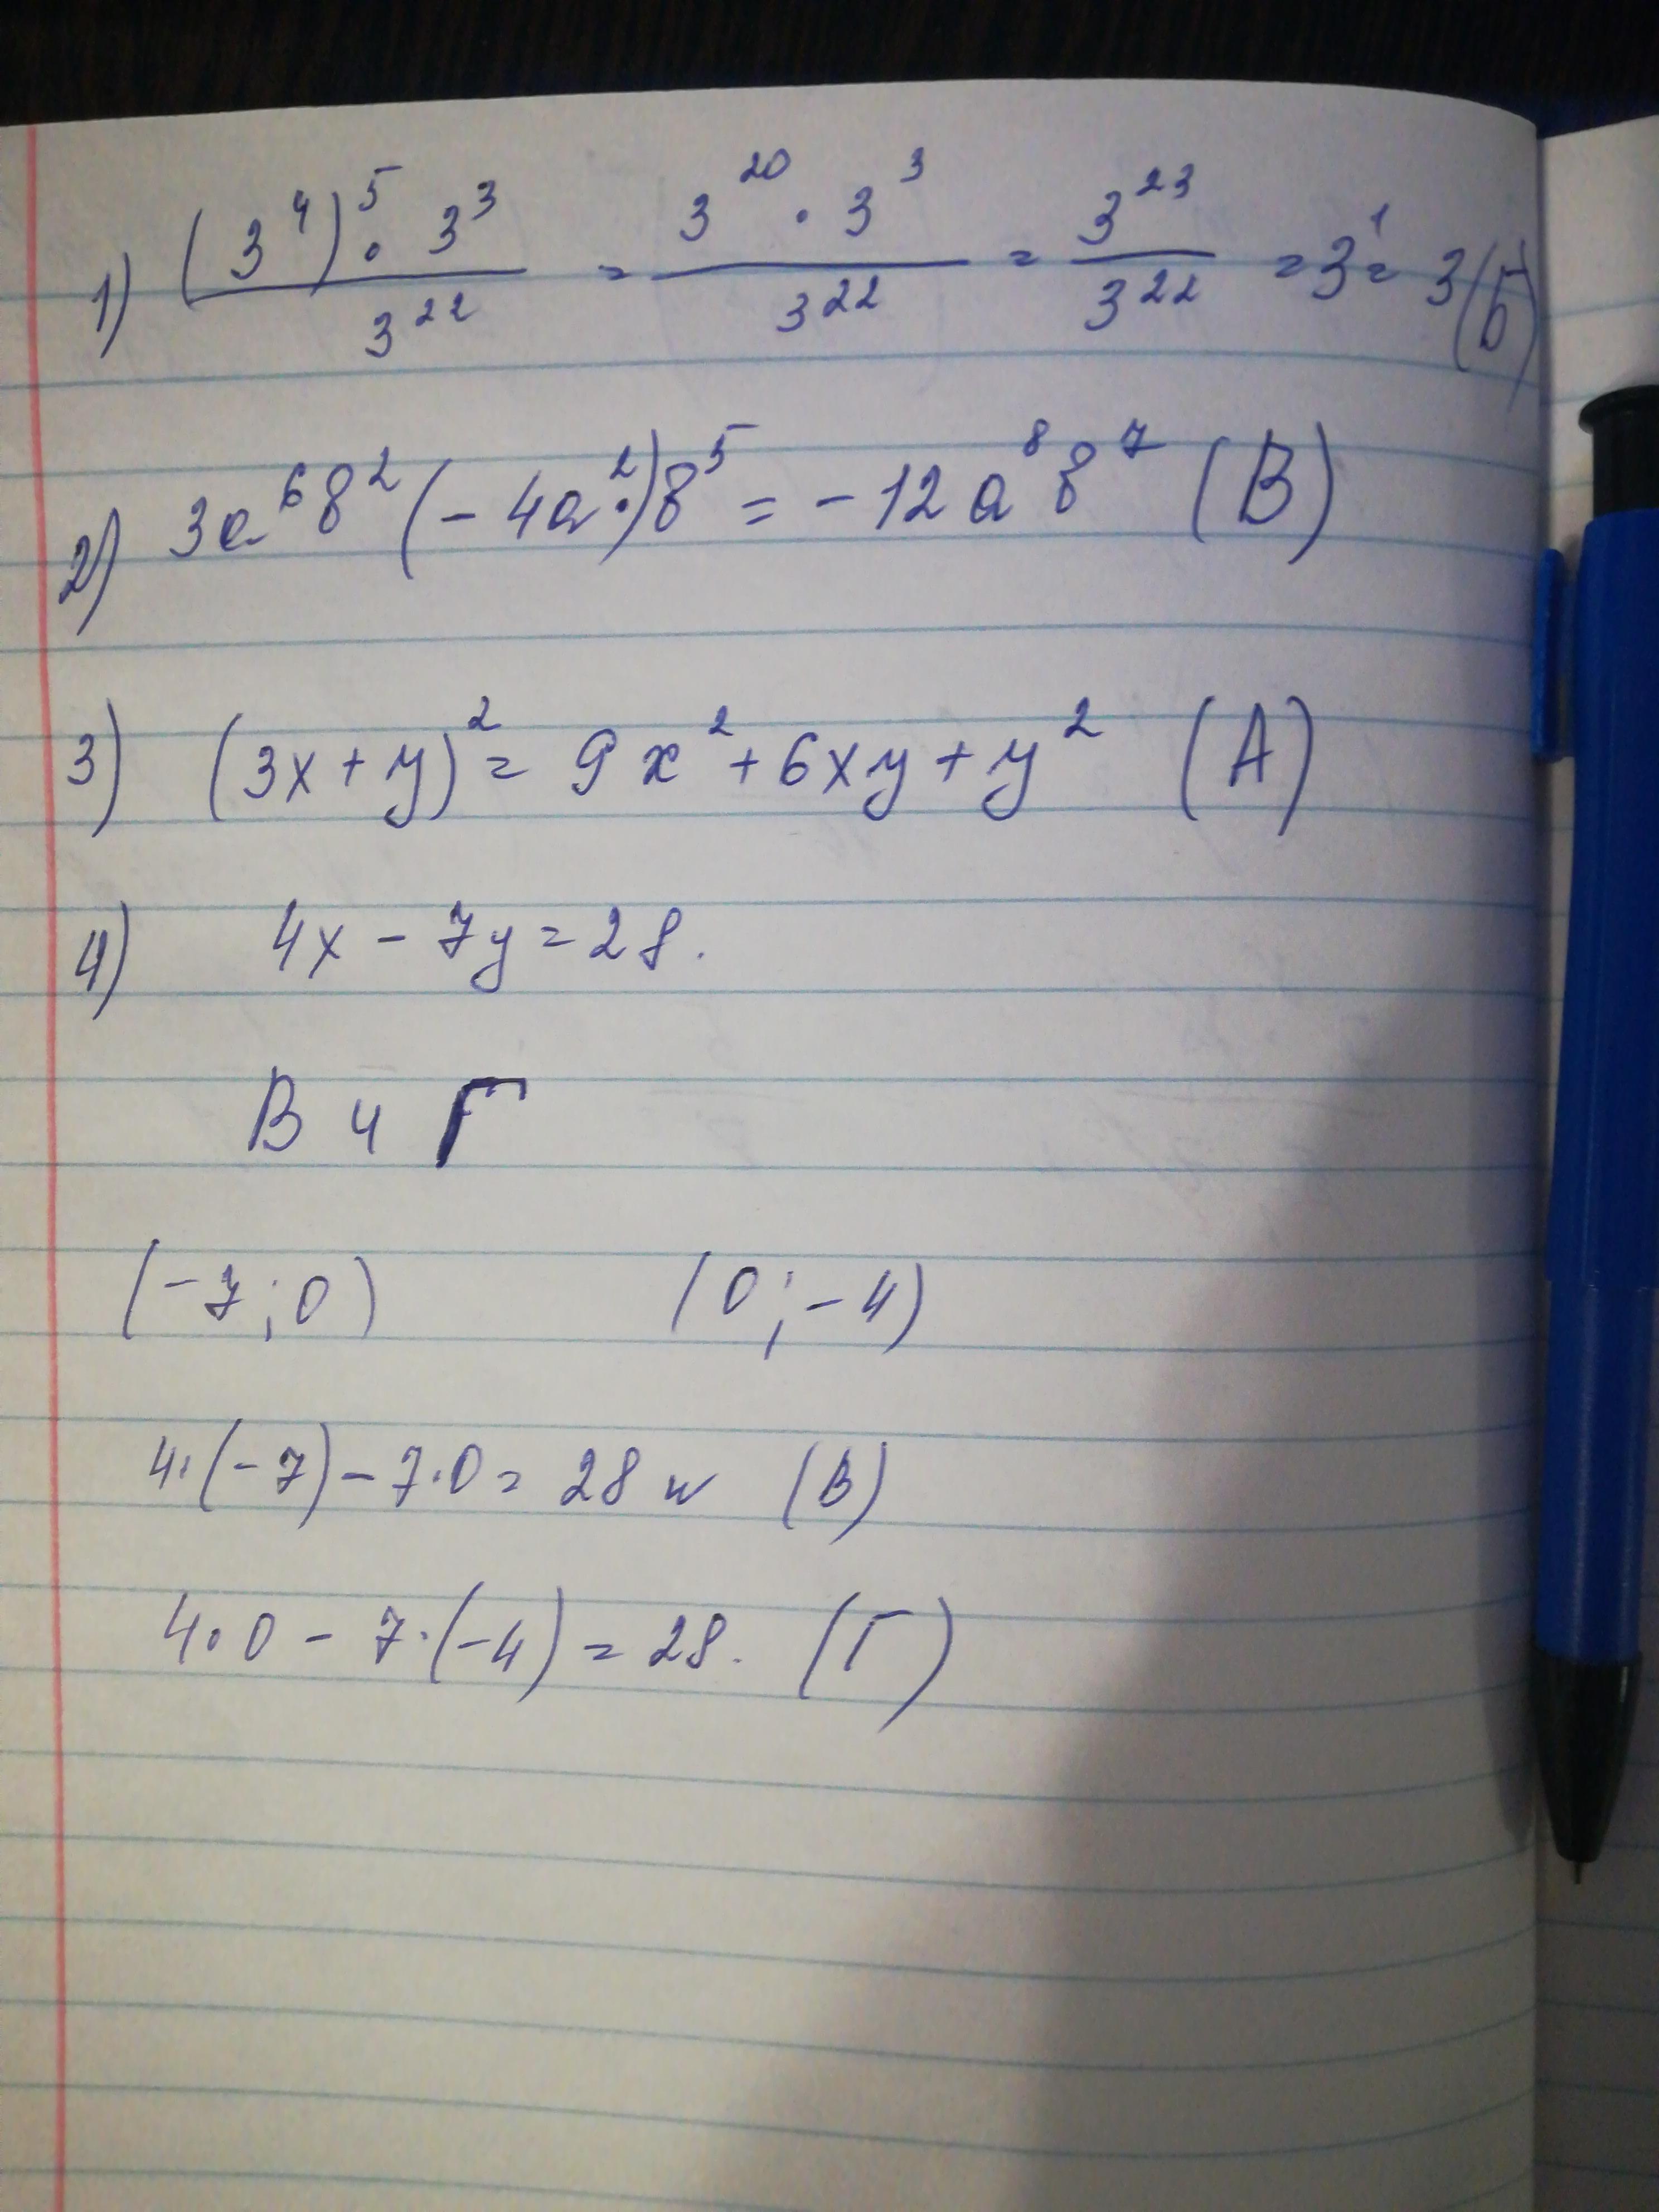 1) (3⁴)⁵ · 3³ / 3²² = 3²⁰ · 3³ / 3²² = 3²³ / 3²² = 3¹ = 3 (Б)
2) 3a⁶b²(-4a²·)b⁵ = -12a⁸b⁷ (В)
3) (3x+y)² = 9x² + 6xy + y² (А)
4) 4x - 7y = 28.
В и Г
(-7; 0) (0; -4)
4·(-7) - 7·0 = 28 и (В)
4·0 - 7·(-4) = 28. (Г)